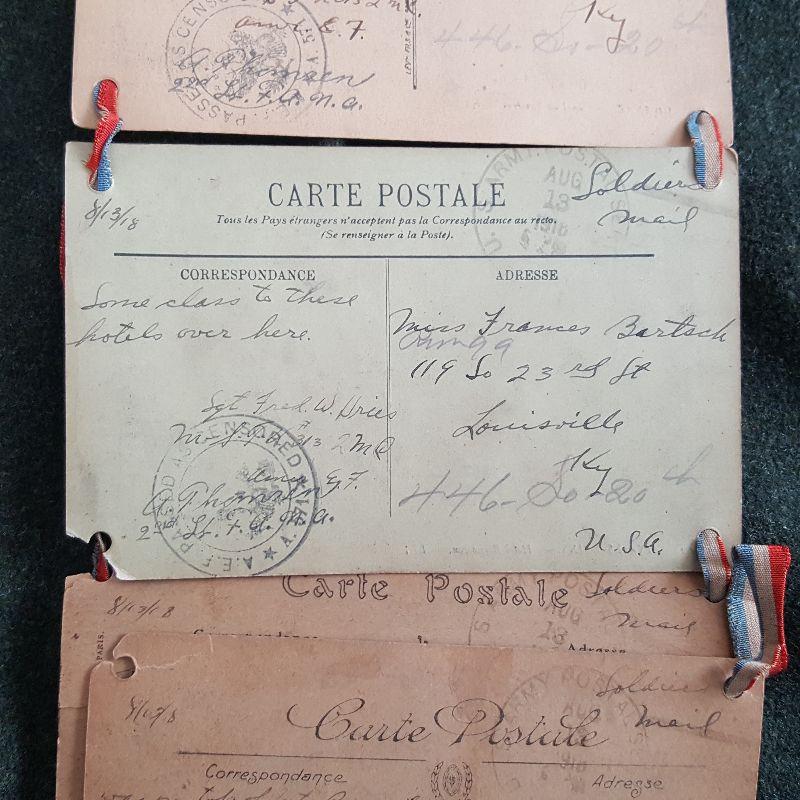 A.E.F.
446-So-20th
Ky
PASSED AS CENSORED
2nd Lt. F.A. N.A.
CARTE POSTALE
Tous les Pays étrangers n'acceptent pas la Correspondance au recto.
(Se renseigner à la Poste).
8/13/18
U.S. ARMY POST
AUG
13
1918
Soldiers
mail
CORRESPONDANCE
ADRESSE
Some class to these
hotels over here.
Miss Frances Bartsch
119 So 23rd St
Louisville
Ky
446-So-20th
U.S.A.
Sgt Fred. W. Hries
313
Amer E.F.
2nd Lt. F.A. N.A.
A.E.F. PASSED AS CENSORED
Carte Postale
8/13/18
AUG
13
Soldiers
Mail
PARIS.
Correspondance
Adresse
8/13/18
Carte Postale
ARMY POSTAL
Soldiers
Mail
Correspondance
Adresse